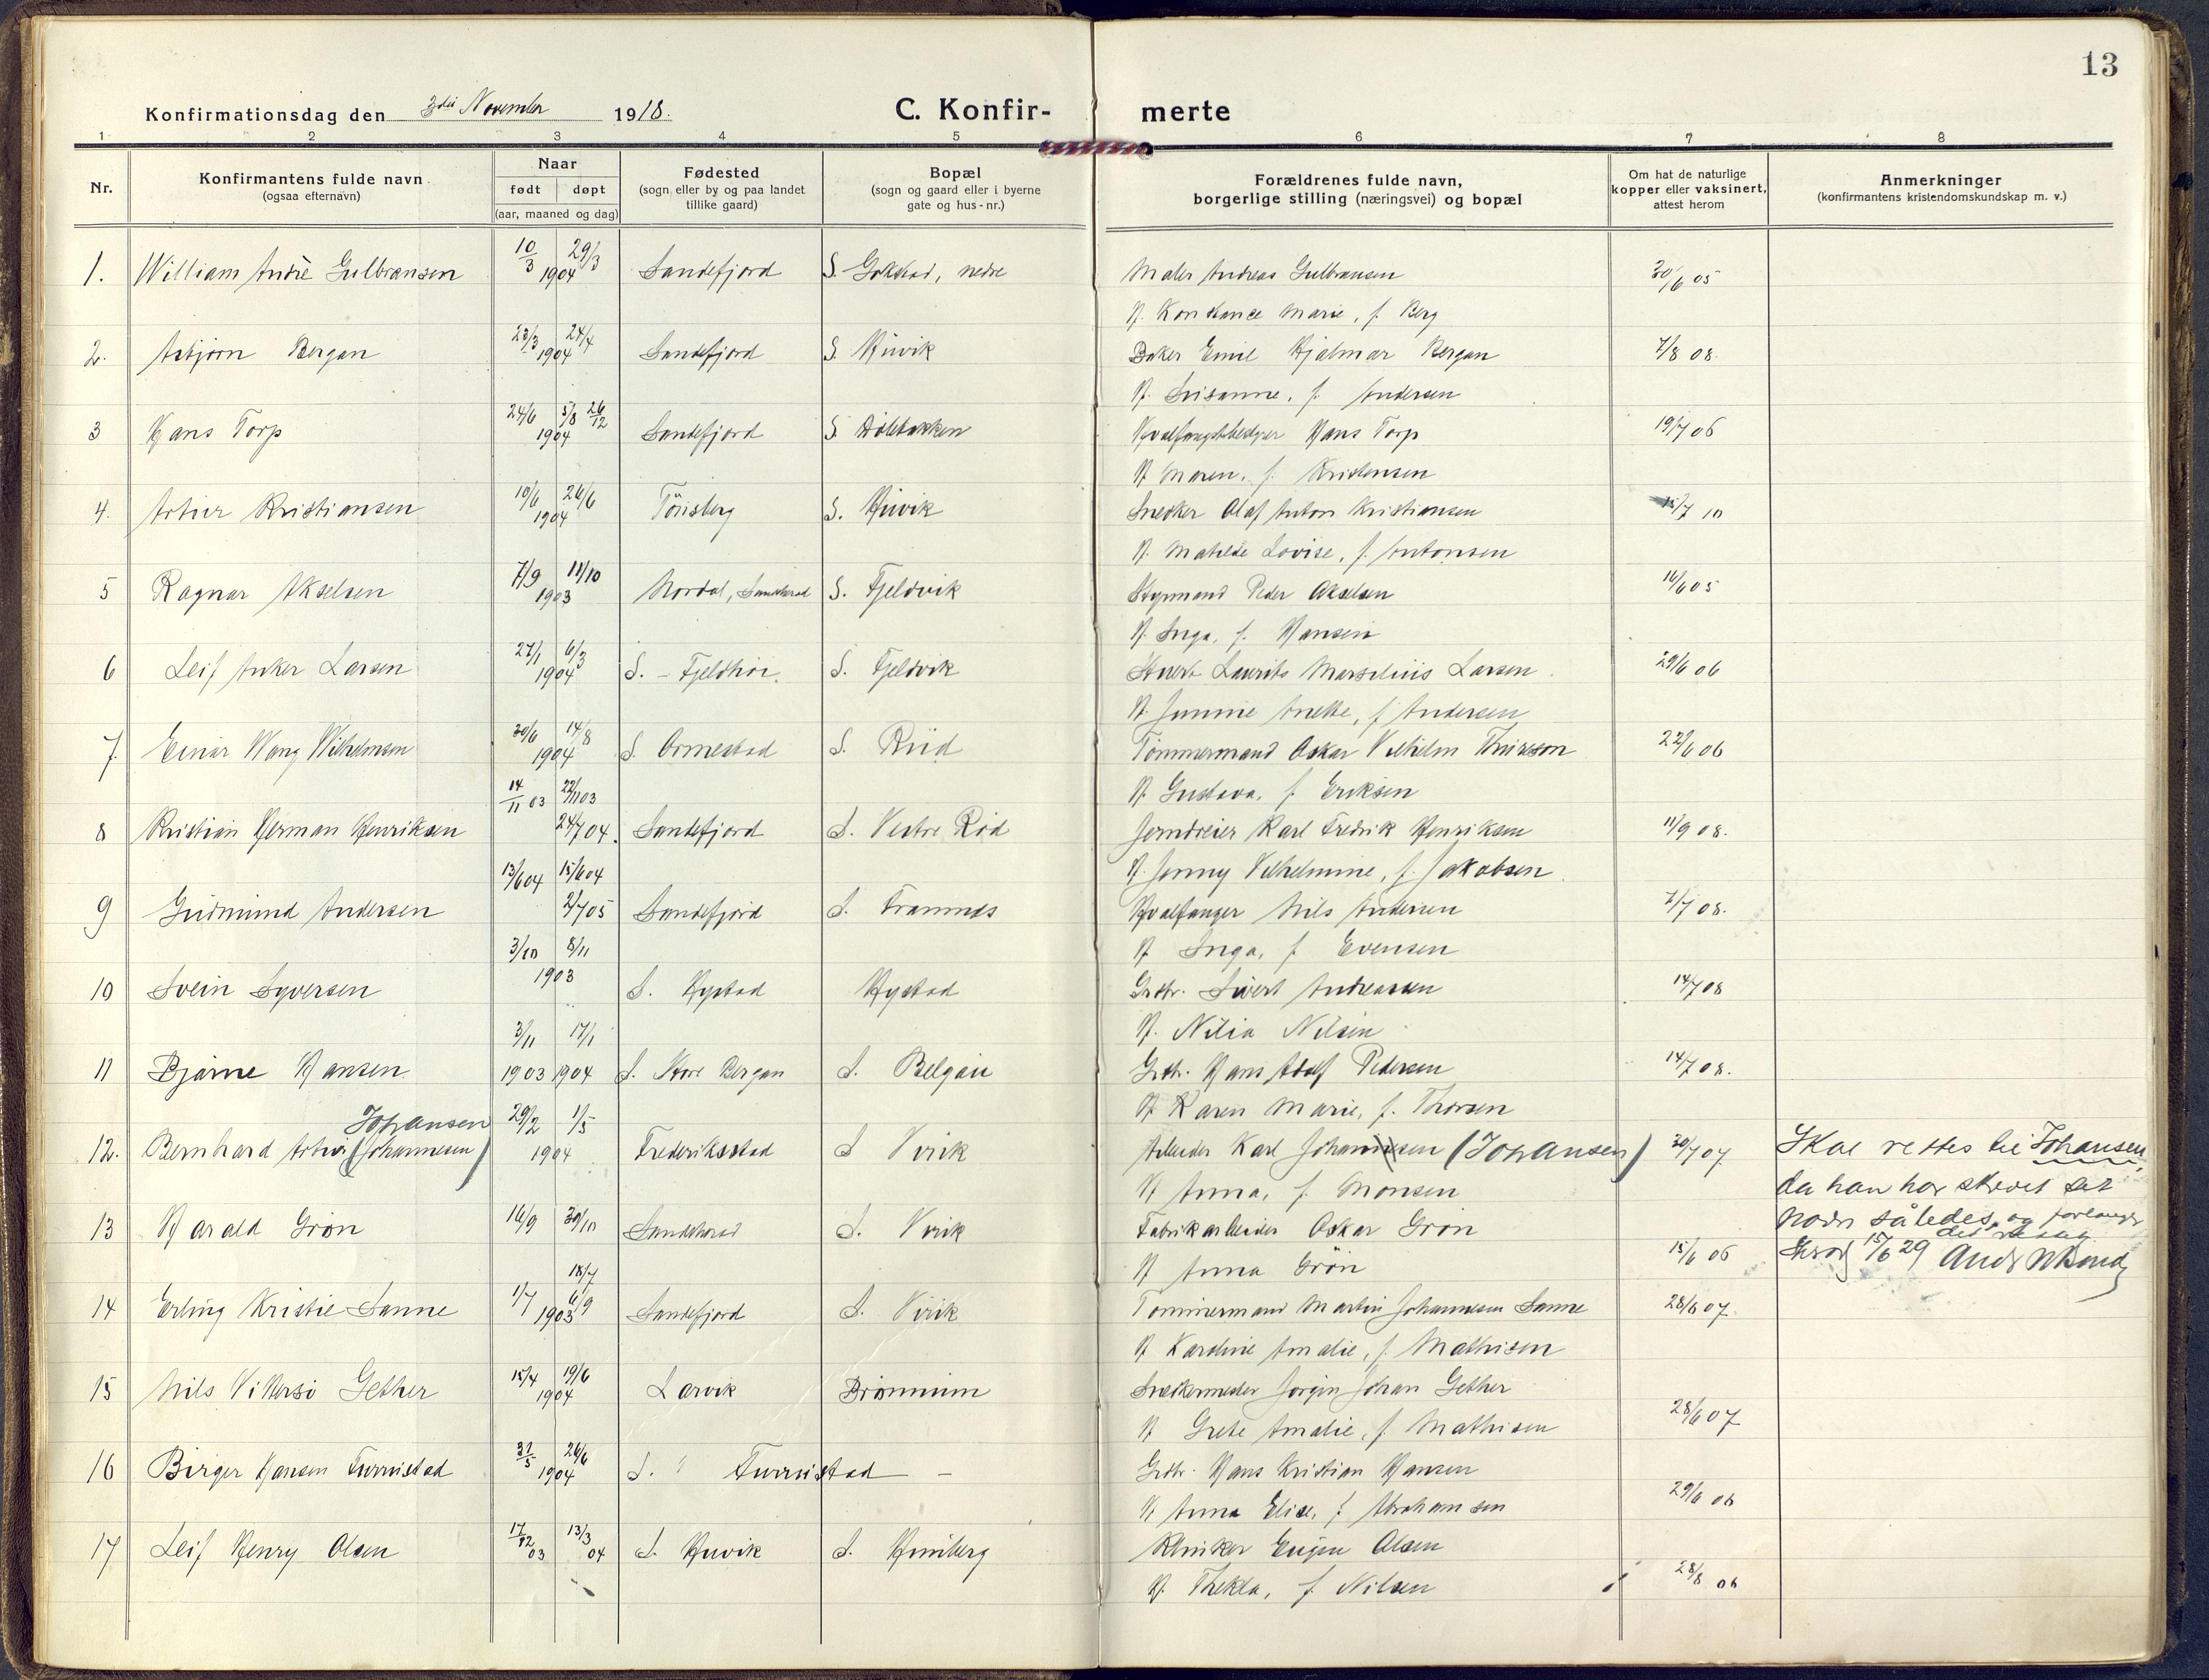 13
Konfirmationsdag den 3die November 1918. C. Konfir- merte
1 2 3 4 5 6 7 8
Nr. Konfirmantens fulde navn (ogsaa efternavn) Naar født døpt (aar, maaned og dag) Fødested (sogn eller by og paa landet tillike gaard) Bopæl (sogn og gaard eller i byerne gate og hus-nr.) Forældrenes fulde navn, borgerlige stilling (næringsvei) og bopæl Om hat de naturlige kopper eller vaksinert, attest herom Anmerkninger (konfirmantens kristendomskundskap m. v.)
1. William Andrè Gulbransen 10/3 29/3 1904 Sandefjord S. Gokstad, nedre Maler Andreas Gulbransen 30/6 05
H. Konstance Marie, f. Berg
2. Asbjørn Bergan 23/3 24/4 1904 Sandefjord S. Huvik Baker Emil Hjalmar Bergan 7/8 08.
H. Susanne, f. Andersen
3 Hans Torp 24/6 5/8 26/12 1904 Sandefjord S. Hans Torp 19/7 06
H Maren, f. Kristensen
4. Artur Kristiansen 10/6 26/6 1904 Tönsberg S. Huvik Snedker Olaf Anton Kristiansen 15/7 10
H. Matilde Lovise, f. Antonsen
5 Ragnar Akselsen 7/9 11/10 1903 Nordal, Sandeherad S. Fjeldvik Styrmand Peder Akselsen 16/6 05
H. Inga, f. Hansen
6 Leif Anker Larsen 27/1 6/3 1904 S. - S. Fjeldvik Stuert Laurits Marselius Larsen 29/6 06
H. Anette, f. Andersen
7. Einar Wang Wilhelmsen 30/6 14/8 1904 S. Ormestad S. Tömmermand Oskar Vilhelm 22/6 06
H Gustava, f Eriksen
14/11 03 22/11 03
8 Kristian Herman Henriksen 24/7 04. Sandefjord S. Vestre Rød Jerndreier Karl Fredrik Henriksen 11/9 08.
13/6 04 15/6 04 H. Jenny Vilhelmine, f. Jakobsen
9 Gudmund Andersen 2/7 05 Sandefjord S. Framnes Hvalfanger Nils Andersen 7/7 08.
3/10 8/11 H Inga, f Evensen
10 Svein Syversen 1903 S. Hystad Hystad Grdbr. Sivert Andreassen 14/7 08
3/11 17/1 H. Nilia Nilsen
11 Bjarne Hansen 1903 1904 S. Store Bergan S. Grdbr. Hans Adolf Pedersen 14/7 08.
Johansen 29/2 1/5 H Karen Marie, f. Thorsen
12. Bernhard Artur (Johannesen) 1904 Frederiksstad S Virik Arbeider Karl Johannesen (Johansen) 30/7 07 Skal rettes til Johansen,
H Anna, f. Monsen da han har skrevet sit
13 Harald Grøn 16/9 30/10 Sandeherad S. Virik Fabrikarbeider Oskar Grøn navn således, og forlanger
H Anna Grøn 15/6 06 15/6 29
18/7
14 Erling Kristie Sanne 1/7 6/9 1903 Sandefjord S. Virik Tömmermand Martin Johannesen Sanne 28/6 07.
H Karoline Amalie, f. Mathisen
15 Nils Gether 15/4 19/6 1904 Larvik Snedkermester Jørgen Johan Gether
H Grete Amalie, f. Mathisen 28/6 07
16 Birger Hansen Furustad 31/5 26/6 1904 S. Furustad - Grdbr. Hans Kristian Hansen
H Anna Elise, f Abrahamsen 29/6 06
17 Leif Henry Olsen 17/12 03 13/3 04 S. Huvik S. Eugen Olsen
H. Thekla, f. Nilsen 28/8 06